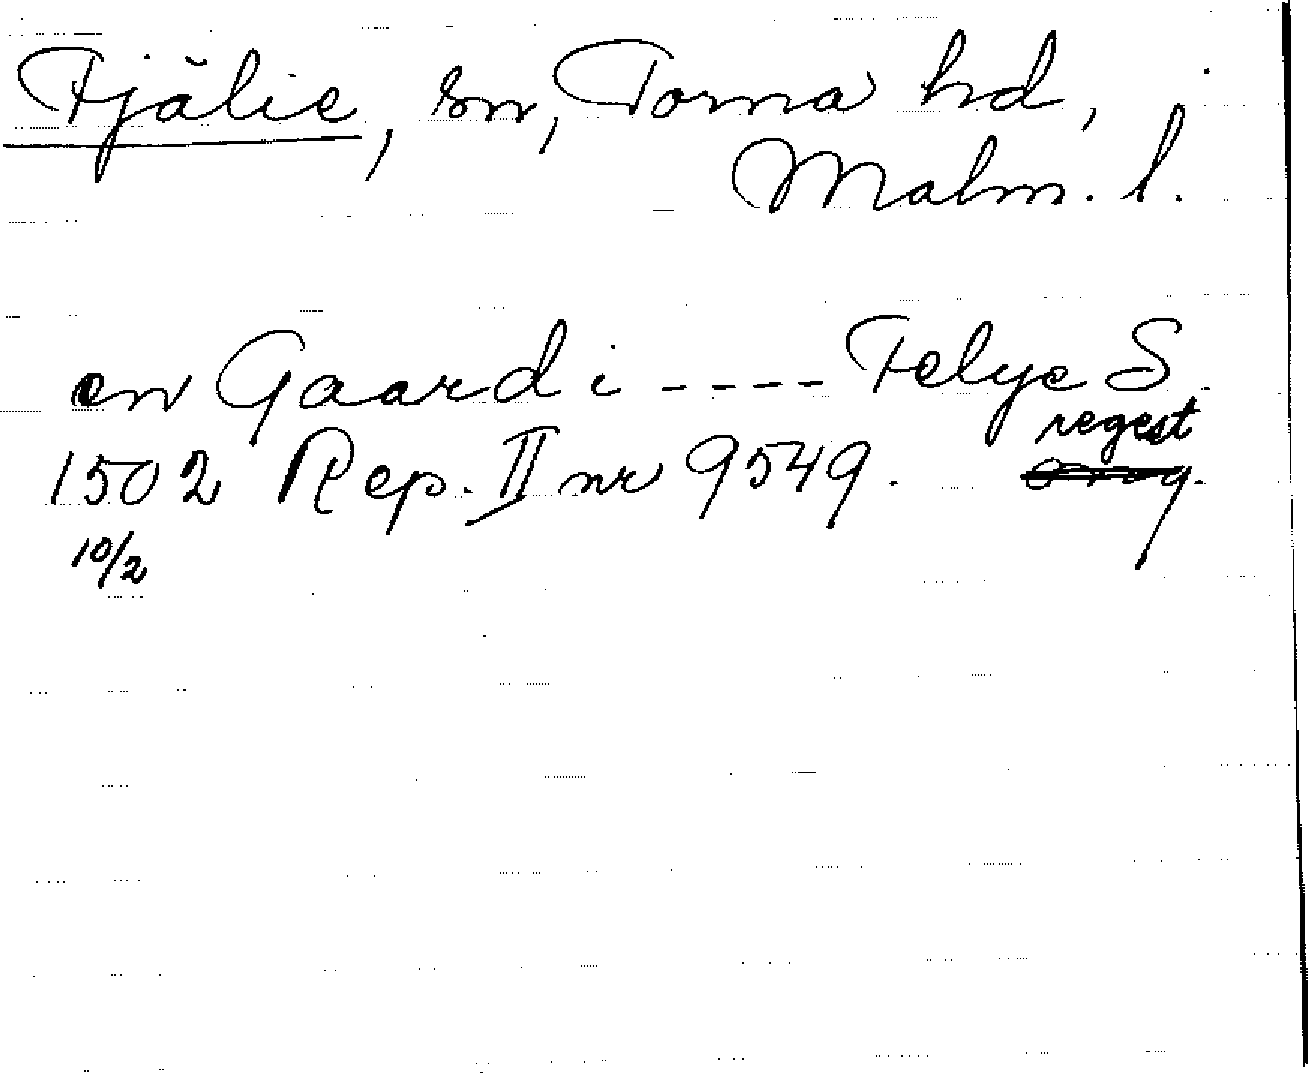 Fjälie, sn, Torna hd,
Malm. l.
en Gaard i ---- Felye S
regest
1502 Rep. II nr 9549.
10/2